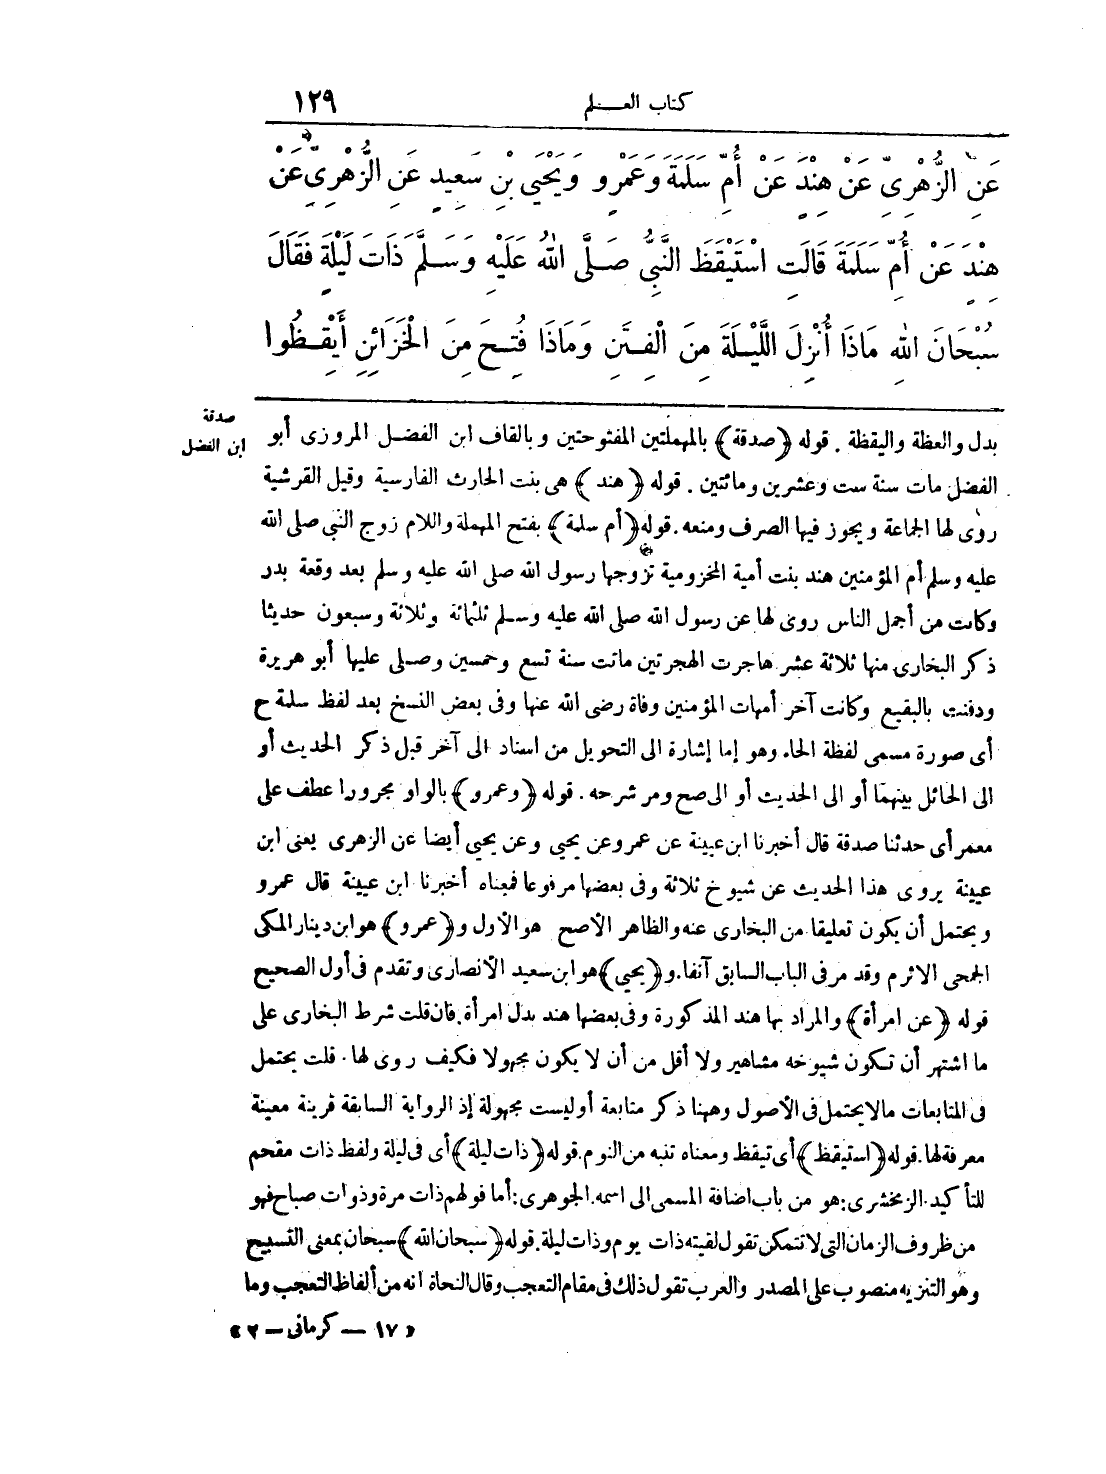 كتاب العلم
١٢٩
عَنِ الزُّهْرِيِّ عَنْ هِنْدٍ عَنْ أُمِّ سَلَمَةَ وَعَمْرٍو وَيَحْيَى بْنِ سَعِيدٍ عَنِ الزُّهْرِيِّ عَنْ
هِنْدٍ عَنْ أُمِّ سَلَمَةَ قَالَتِ اسْتَيْقَظَ النَّبِيُّ صَلَّى اللهُ عَلَيْهِ وَسَلَّمَ ذَاتَ لَيْلَةٍ فَقَالَ
سُبْحَانَ اللهِ مَاذَا أُنْزِلَ اللَّيْلَةَ مِنَ الْفِتَنِ وَمَاذَا فُتِحَ مِنَ الْخَزَائِنِ أَيْقِظُوا
صدقة
ابن الفضل
بدل والعظة واليقظة . قوله ﴿صدقة﴾ بالمهملتين المفتوحتين وبالقاف ابن الفضل المروزى أبو
الفضل مات سنة ست وعشرين ومائتين . قوله ﴿هند﴾ هى بنت الحارث الفارسية وقيل القرشية
روى لها الجماعة ويجوز فيها الصرف ومنعه . قوله ﴿أم سلمة﴾ بفتح المهملة واللام زوج النبى صلى الله
عليه وسلم أم المؤمنين هند بنت أمية المخزومية تزوجها رسول الله صلى الله عليه وسلم بعد وقعة بدر
وكانت من أجمل الناس روى لها عن رسول الله صلى الله عليه وسلم ثلثمائة وثلاثة وسبعون حديثا
ذكر البخارى منها ثلاثة عشر هاجرت الهجرتين ماتت سنة تسع وخمسين وصلى عليها أبو هريرة
ودفنت بالبقيع وكانت آخر أمهات المؤمنين وفاة رضى الله عنها وفى بعض النسخ بعد لفظ سلمة ح
أى صورة مسمى لفظة الحاء وهو إما إشارة الى التحويل من اسناد الى آخر قبل ذكر الحديث أو
الى الحائل بينهما أو الى الحديث أو الى صح ومر شرحه . قوله ﴿وعمرو﴾ بالواو مجرورا عطف على
معمر أى حدثنا صدقة قال أخبرنا ابن عيينة عن عمرو عن يحيى وعن يحيى أيضا عن الزهرى يعنى ابن
عيينة يروى هذا الحديث عن شيوخ ثلاثة وفى بعضها مرفوعا فمعناه أخبرنا ابن عيينة قال عمرو
ويحتمل أن يكون تعليقا من البخارى عنه والظاهر الأصح هو الأول و﴿عمرو﴾ هو ابن دينار المكى
الجمحى الاثرم وقد مر فى الباب السابق آنفا . و﴿يحيى﴾ هو ابن سعيد الأنصارى وتقدم فى أول الصحيح
قوله ﴿عن امرأة﴾ والمراد بها هند المذكورة وفى بعضها هند بدل امرأة . فان قلت شرط البخارى على
ما اشتهر أن تكون شيوخه مشاهير ولا أقل من أن لا يكون مجهولا فكيف روى لها . قلت يحتمل
فى المتابعات مالا يحتمل فى الأصول وههنا ذكر متابعة أوليست مجهولة إذ الرواية السابقة قرينة معينة
معرفة لها . قوله ﴿استيقظ﴾ أى تيقظ ومعناه تنبه من النوم . قوله ﴿ذات ليلة﴾ أى فى ليلة ولفظ ذات مقحم
للتأكيد . الزمخشرى : هو من باب اضافة المسمى الى اسمه . الجوهرى : أما قولهم ذات مرة وذوات صباح فهو
من ظروف الزمان التى لا تتمكن تقول لقيته ذات يوم وذات ليلة . قوله ﴿سبحان الله﴾ سبحان بمعنى التسبيح
وهو التنزيه منصوب على المصدر والعرب تقول ذلك فى مقام التعجب وقال النحاة انه من ألفاظ التعجب وما
« ١٧ – كرمانى – ٢ »